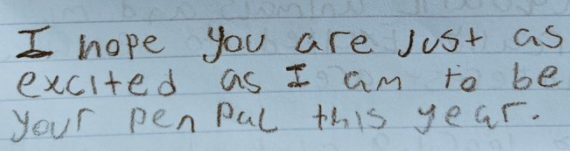 I hope you are Just as
excited as I am to be
your pen Pal this year.